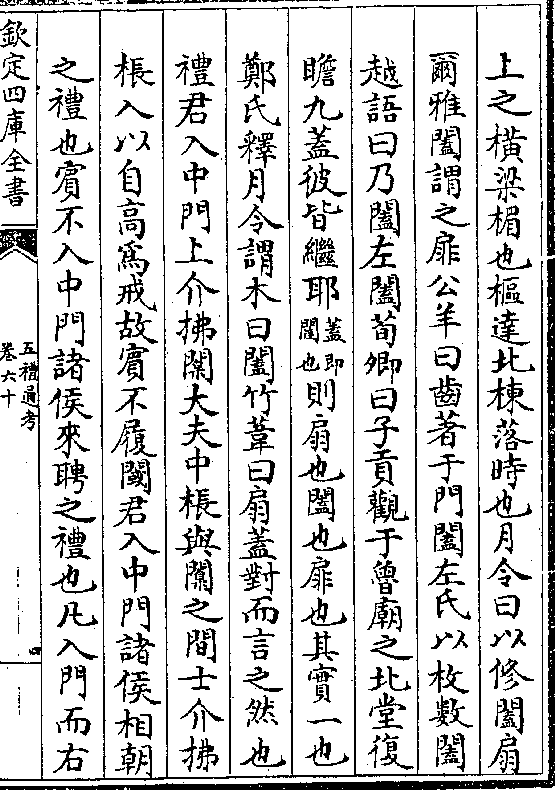 上之橫梁楣也樞達北棟落時也月令曰以修闔扇
爾雅闔謂之扉公羊曰齒著于門闔左氏以枚數闔
越語曰乃闔左闔荀卿曰子貢觀于魯廟之北堂復
瞻九蓋彼皆繼耶蓋即闔也則扇也闔也扉也其實一也
鄭氏釋月令謂木曰闔竹葦曰扇蓋對而言之然也
禮君入中門上介拂闑大夫中棖與闑之間士介拂
棖入以自高為戒故賓不履閾君入中門諸侯相朝
之禮也賓不入中門諸侯來聘之禮也凡入門而右
欽定四庫全書
五禮通考
卷六十